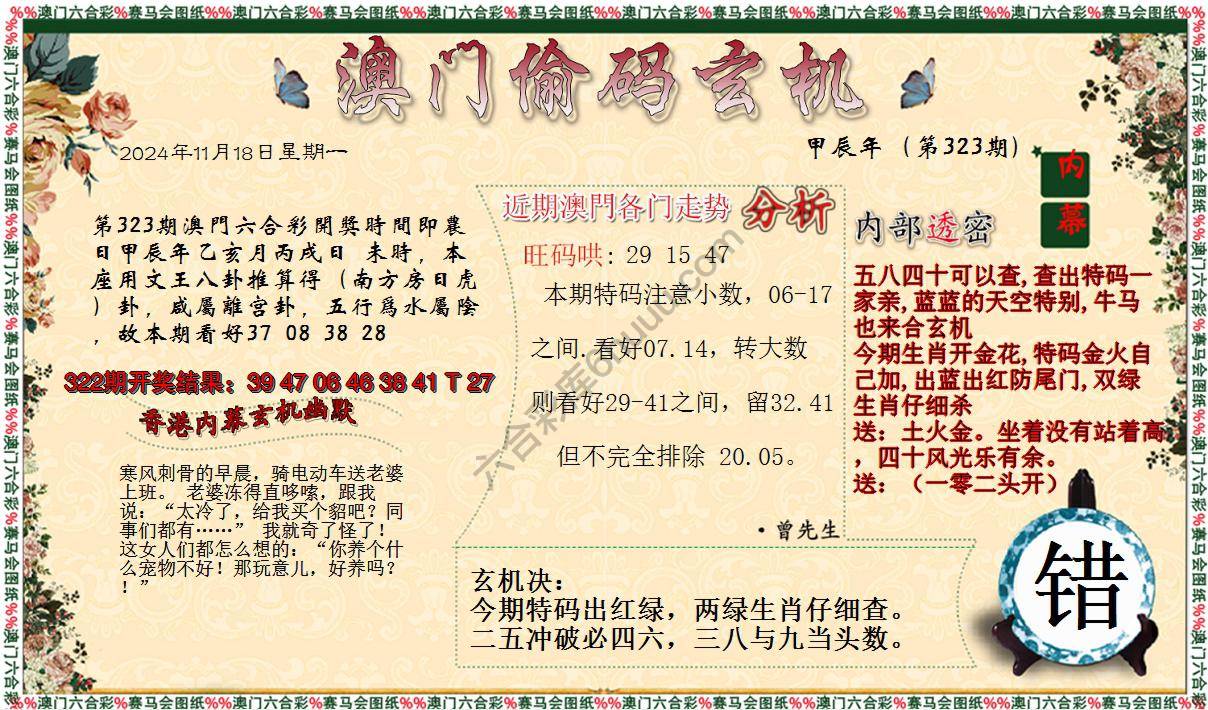 %%澳门六合彩%赛马会图纸%%澳门六合彩%赛马会图纸%%澳门六合彩%赛马会图纸%%澳门六合彩%赛马会图纸%%澳门六合彩%赛马会图纸%%澳门六合彩%赛马会图纸%%
澳门偷码玄机
2024年11月18日星期一
甲辰年（第323期）
内
幕
第323期澳門六合彩開獎時間即農
日甲辰年乙亥月丙戌日 未時，本
座用文王八卦推算得（南方房日虎
）卦，咸屬離宫卦，五行爲水屬陰
，故本期看好37 08 38 28
322期开奖结果：39 47 06 46 38 41 T 27
香港内幕玄机幽默
寒风刺骨的早晨，骑电动车送老婆
上班。 老婆冻得直哆嗦，跟我
说：“太冷了，给我买个貂吧？同
事们都有……” 我就奇了怪了！
这女人们都怎么想的：“你养个什
么宠物不好！那玩意儿，好养吗？
！”
近期澳門各门走势 分析
旺码哄: 29 15 47
本期特码注意小数，06-17
之间.看好07.14，转大数
则看好29-41之间，留32.41
但不完全排除 20.05。
·曾先生
内部透密
五八四十可以查,查出特码一
家亲,蓝蓝的天空特别,牛马
也来合玄机
今期生肖开金花,特码金火自
己加,出蓝出红防尾门,双绿
生肖仔细杀
送：土火金。坐着没有站着高
，四十风光乐有余。
送：（一零二头开）
玄机决：
今期特码出红绿，两绿生肖仔细查。
二五冲破必四六，三八与九当头数。
错